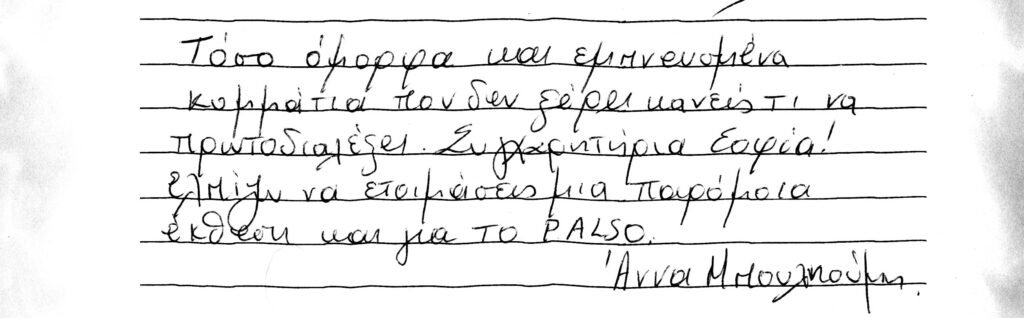 Τόσο όμορφα και εμπνευσμένα
κομμάτια που δεν ξέρει κανείς τι να
πρωτοδιαλέξει. Συγχαρητήρια Σοφία!
Ελπίζω να ετοιμάσεις μια παρόμοια
έκθεση και για το PALSO.
Άννα